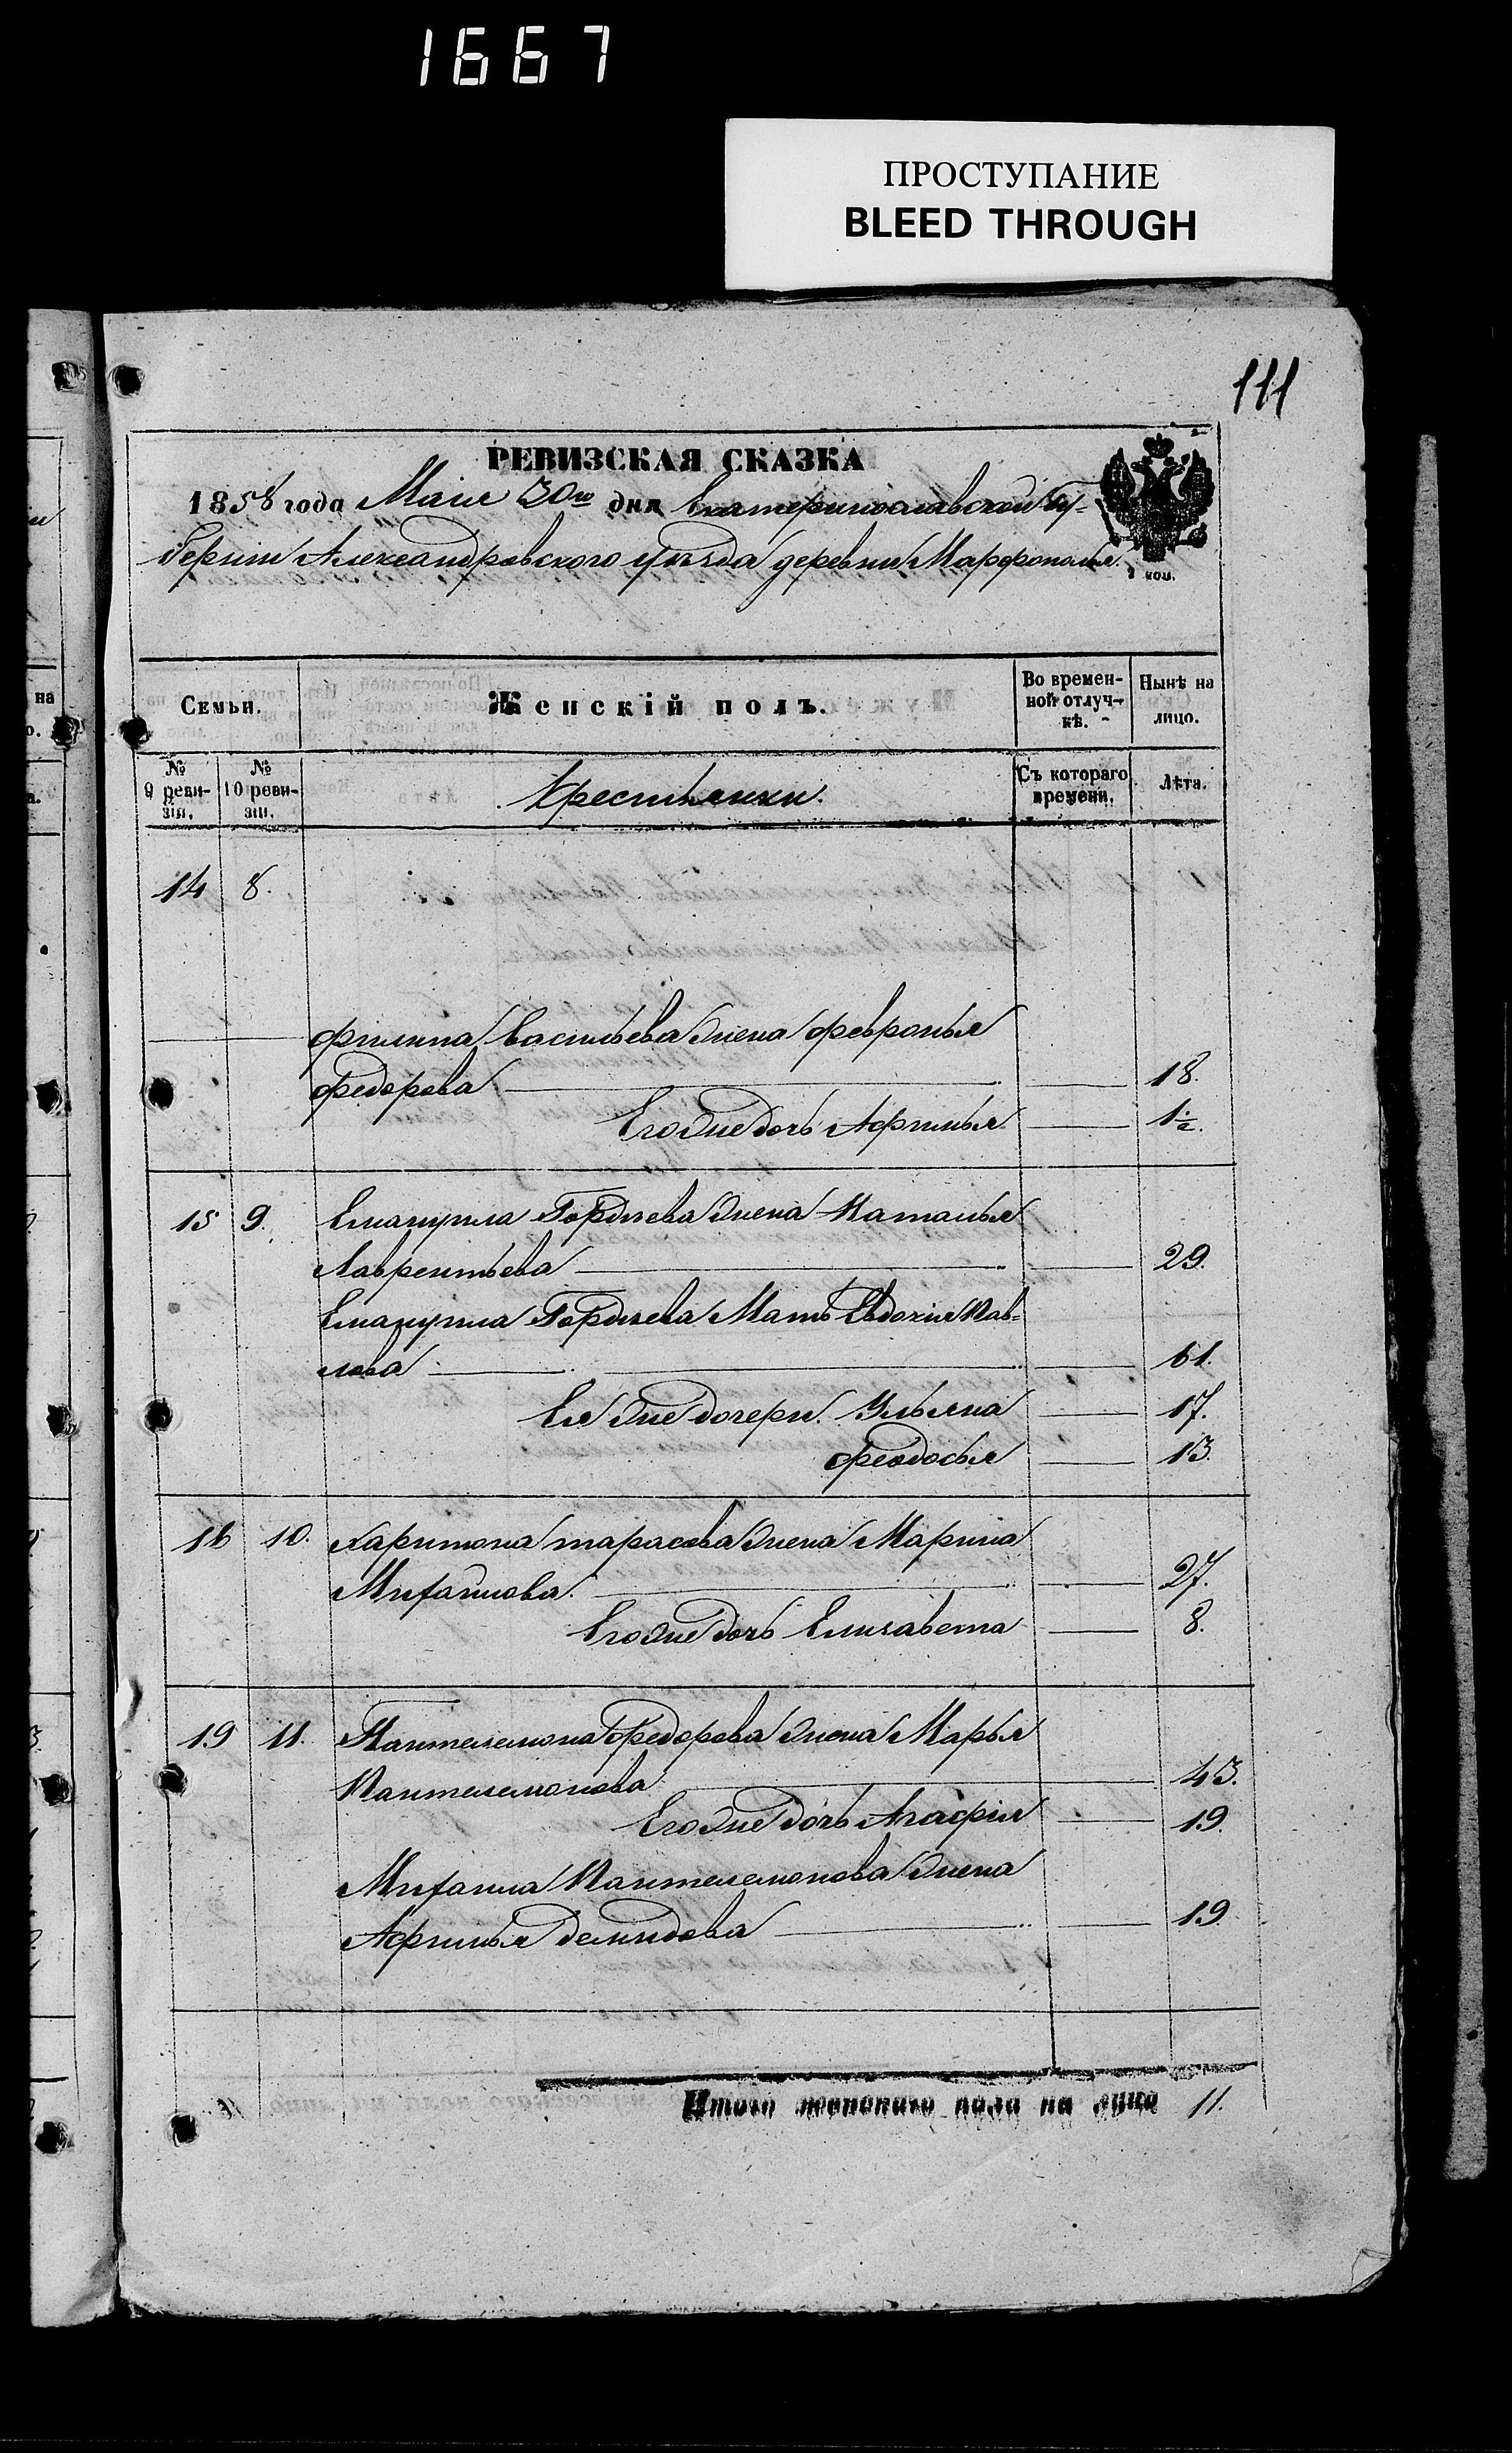 1667
ПРОСТУПАНИЕ
BLEED THROUGH
111
РЕВИЗСКАЯ СКАЗКА
1858 года Маiя 30го дня Екатеринославской Гу-
бернiи Александровского уѣзда деревни Марфополья.
Семьи.
Женскiй полъ.
Во времен-
ной отлуч-
кѣ.
Нынѣ на
лицо.
№
9 реви-
зiи.
№
10 реви-
зiи.
Крестьянки.
Съ котораго
времени.
Лѣта.
14 8.
Филипа Васильева жена Февронья
Федорова 18.
Его же дочь Афимья 1½.
15 9. Емануила Гордѣева жена Наталья
Лаврентьева 29.
Емануила Гордѣева Мать Евдокiя Пав-
лова 61.
Ея же дочери. Ульяна 17.
Феодосья 13.
16 10. Харитона тарасова жена Марина
Михайлова. 27.
Его же дочь Елизавета 8.
19 11. Пантелемона Федорова жена Марья
Пантелемонова 43.
Его же дочь Агафiя 19.
Михаила Пантелемонова жена
Афимья Демидова 19.
Итого женского пола на лицо 11.